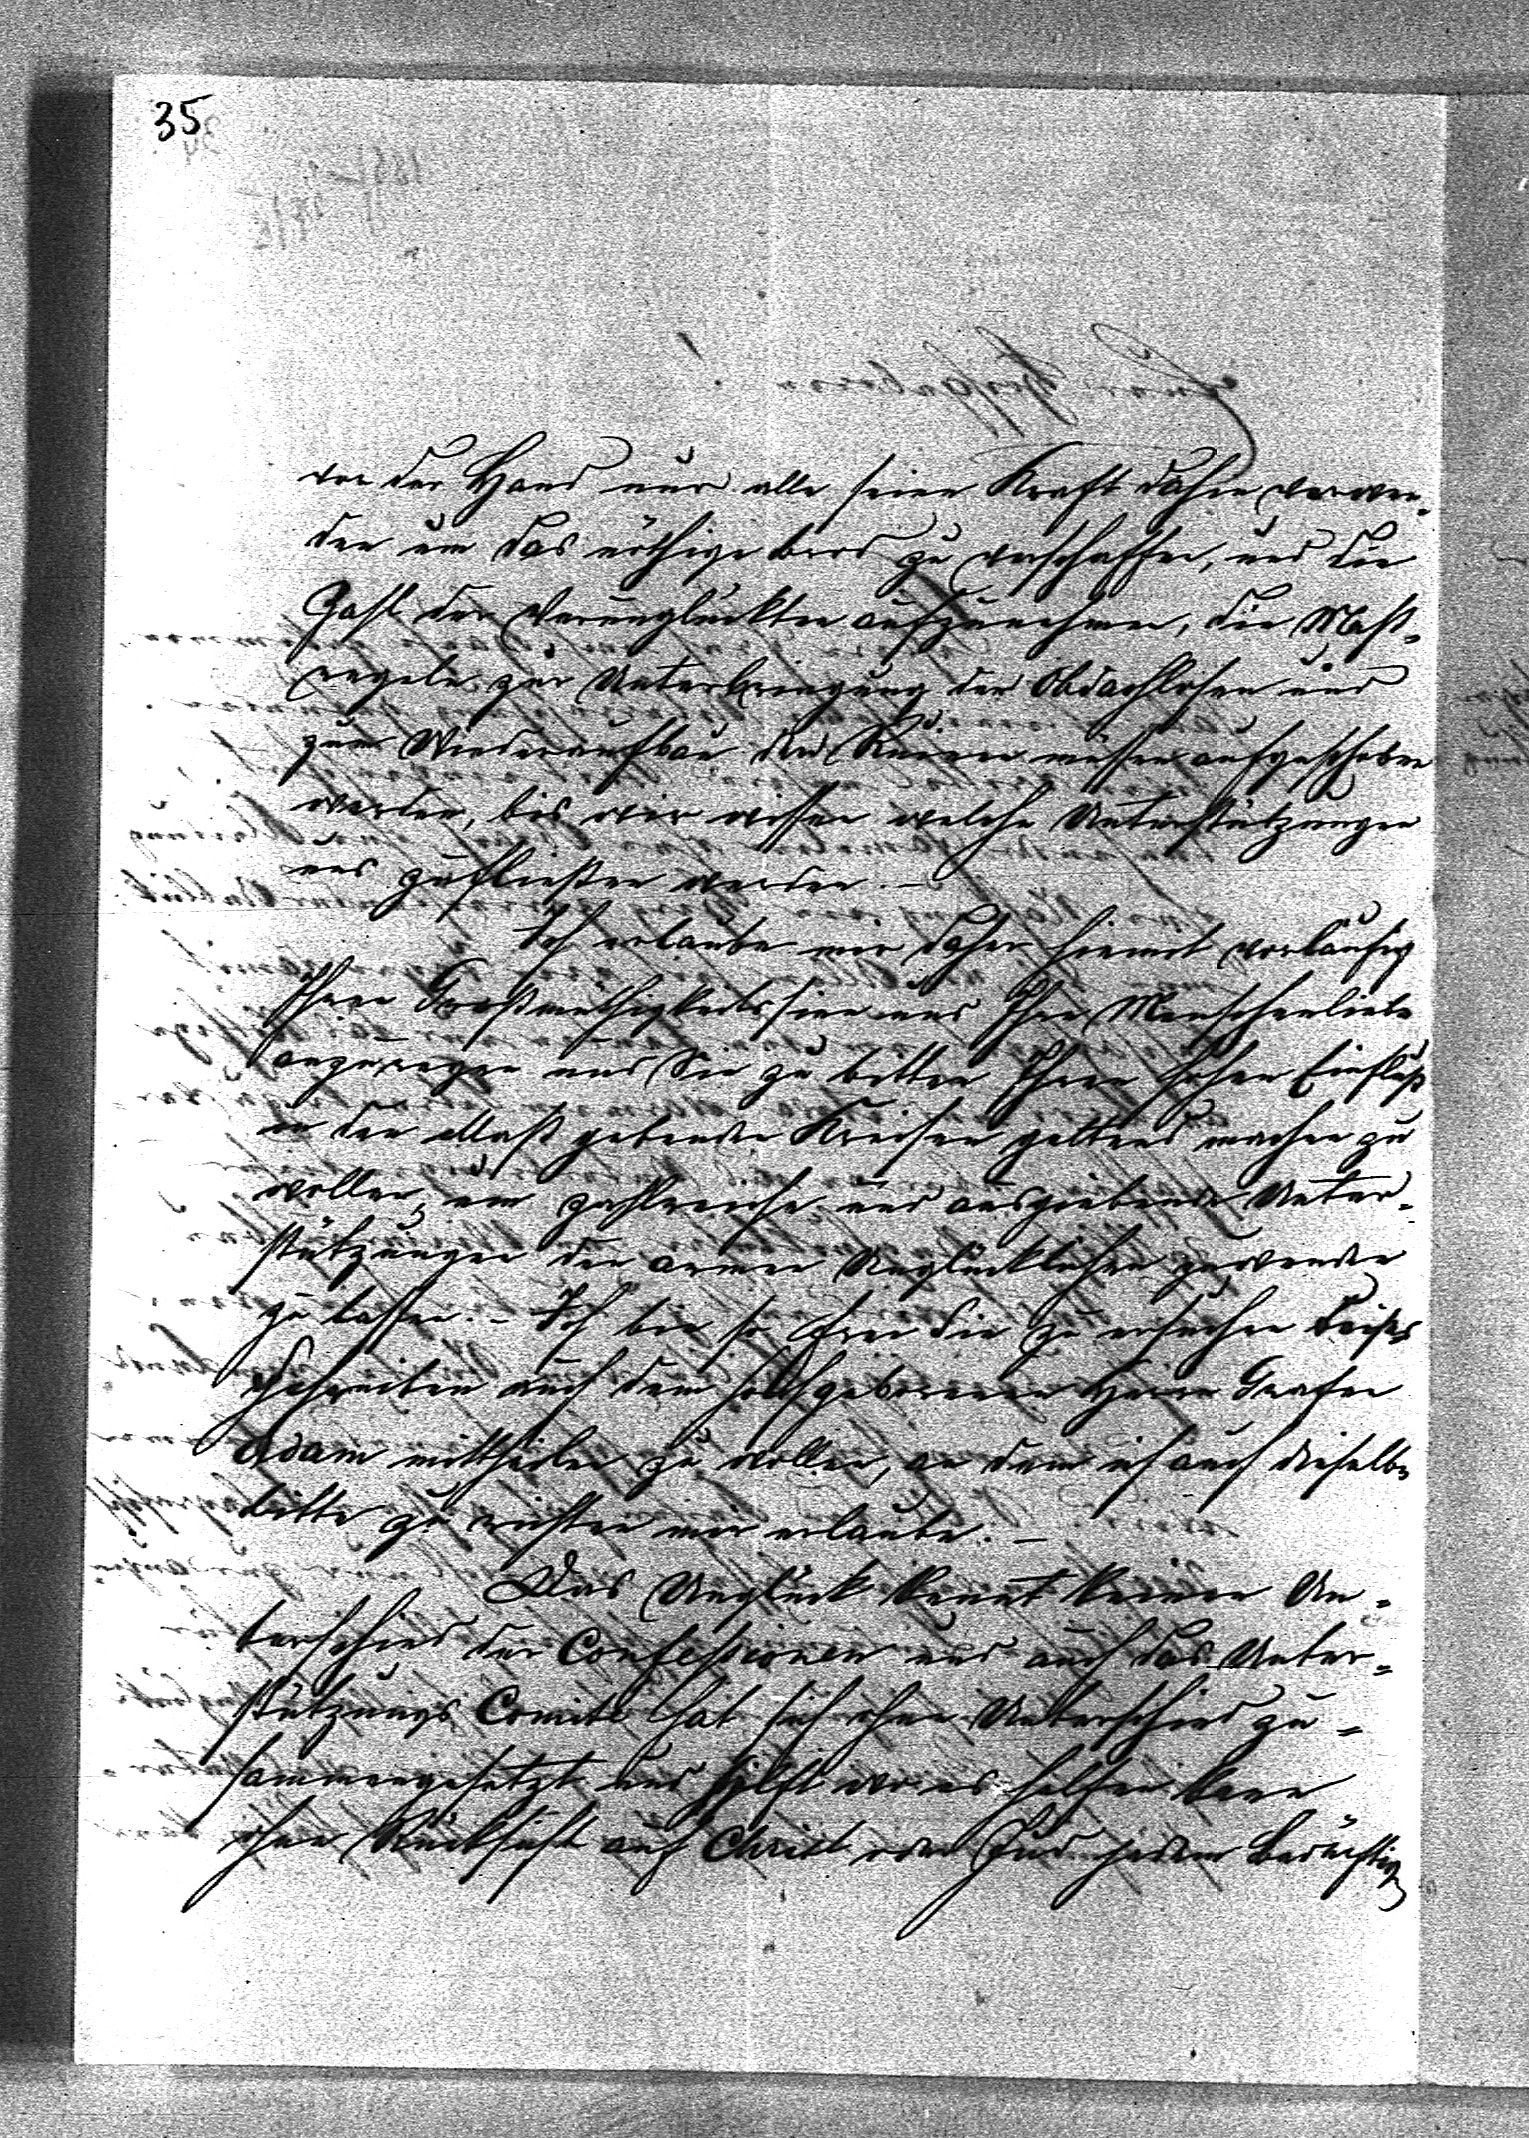 35
vor der Hand nur alle seine Kraft dahin verwen-
den um das nöthige brod zu verschaffen, und die
Zahl der Verunglückten aufzunehmen, die Maß-
regeln zur Unterbringung der Obdachlosen und
zum Wiederaufbau der Ruinen müssen aufgeschoben
werden, bis wir wissen welche Unterstützungen
uns zufließen werden. –
Ich erlaube mir daher hiemit vorläufig
Ihren Großmuthigkeitssinn und Ihre Menschenliebe
anzuregen und Sie zu bitten Ihren hohen Einfluß
in den Maß gebenden Kreisen geltend machen zu
wollen, um zahlreiche und ausgiebende Unter-
stützungen den armen Unglücklichen zuwenden
zu lassen. – Ich bin so frei Sie zu ersuchen dieses
Schreiben auch dem hochgeborenen Herrn Grafen
Adam mittheilen zu wollen, an dem ich auch dieselbe
bitte zu richten mir erlaube. –
Das Unglück kennt keinen Un-
terschied der Confessionen und auch das Unter-
stützungs Comite hat sich ohne Unterschied zu-
sammengesetzt und hilft wo es helfen kann
ohne Rücksicht auf Christ oder Jud jedem Bedürftig